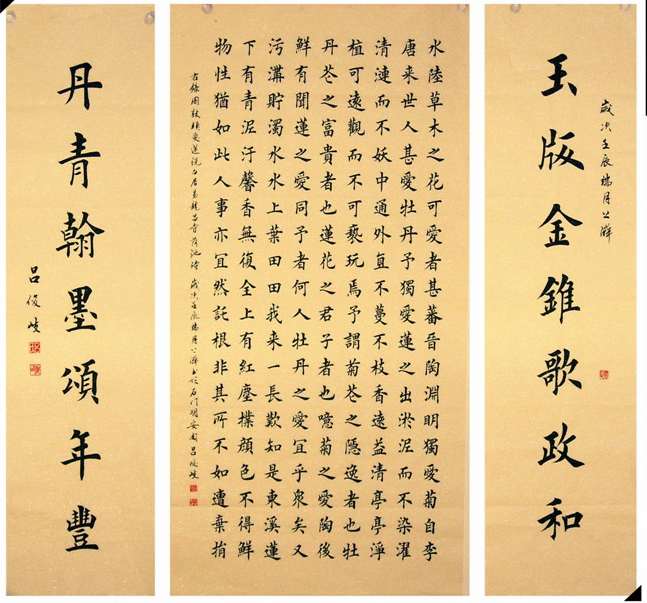 歲次壬辰端月
玉版金錐歌政和
水陸草木之花可愛者甚蕃晉陶淵明獨愛菊自李
唐來世人甚愛牡丹予獨愛蓮之出淤泥而不染濯
清漣而不妖中通外直不蔓不枝香遠益清亭亭淨
植可遠觀而不可褻玩焉予謂菊花之隱逸者也牡
丹花之富貴者也蓮花之君子者也噫菊之愛陶後
鮮有聞蓮之愛同予者何人牡丹之愛宜乎衆矣又
污溝貯濁水水上葉田田我来一長歎知是東溪蓮
下有青泥汙馨香無復全上有紅塵撲顏色不得鮮
物性猶如此人事亦宜然託根非其所不如遭棄捐
右錄周敦頤愛蓮說白居易 歲次壬辰端月 呂俊
丹青翰墨頌年豐
呂俊